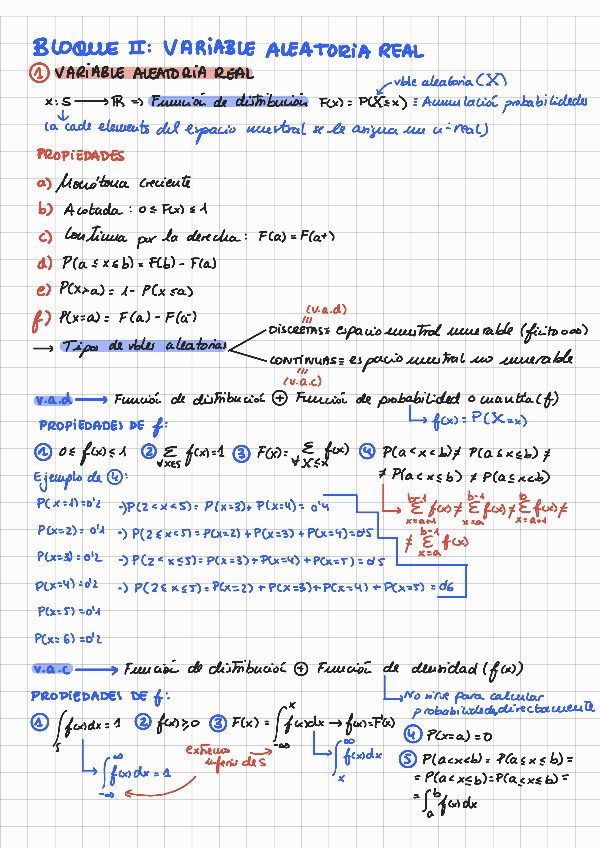 BLOQUE II: VARIABLE ALEATORIA REAL
① VARIABLE ALEATORIA REAL
vble aleatoria (X)
x: S ⟶ ℝ => Función de distribución F(x) = P(X≤x) ≡ Acumulación probabilidades
(a cada elemento del espacio muestral se le asigna un nº real)
PROPIEDADES
a) Monótona creciente
b) Acotada : 0 ≤ F(x) ≤ 1
c) Continua por la derecha : F(a) = F(a+)
d) P(a ≤ x ≤ b) = F(b) - F(a)
e) P(x>a) = 1- P(x≤a)
f) P(x=a) = F(a) - F(a-)
(v.a.d)
DISCRETAS ≡ espacio muestral numerable (finito o ∞)
→ Tipos de vbles aleatorias
CONTÍNUAS ≡ espacio muestral no numerable
(v.a.c)
v.a.d ⟶ Función de distribución ⊕ Función de probabilidad o cuantía (f)
↳ f(x) = P(X=x)
PROPIEDADES DE f:
① 0 ≤ f(x) ≤ 1 ② ∑ ∀x∈S f(x)=1 ③ F(x) = ∑ ∀X≤x f(x) ④ P(a<x<b) ≠ P(a≤x≤b) ≠
≠ P(a<x≤b) ≠ P(a≤x<b)
Ejemplo de ④:
b-1 ∑ x=a+1 f(x) ≠ b-1 ∑ x=a f(x) ≠ b ∑ x=a+1 f(x) ≠
≠ b-1 ∑ x=a f(x)
P(x=1)=0'2 ·) P(2<x<5) = P(x=3)+P(x=4) = 0'4
P(x=2) = 0'1 ·) P(2≤x<5) = P(x=2) + P(x=3) + P(x=4) = 0'5
P(x=3) = 0'2 ·) P(2<x≤5) = P(x=3) + P(x=4) + P(x=5) = 0'5
P(x=4) = 0'2 ·) P(2≤x≤5) = P(x=2) + P(x=3) + P(x=4) + P(x=5) = 0'6
P(x=5) = 0'1
P(x=6) = 0'2
v.a.c ⟶ Función de distribución ⊕ Función de densidad (f(x))
↳ No sirve para calcular
probabilidades directamente
PROPIEDADES DE f:
① ∫S f(x)dx = 1 ② f(x) ≥ 0 ③ F(x) = ∫-∞ x f(x)dx → f(x) = F'(x)
④ P(x=a) = 0
extremo
inferior de S
↳ ∫-∞ ∞ f(x)dx = 1
↳ ∫x ∞ f(x)dx
⑤ P(a<x<b) = P(a≤x≤b) =
= P(a<x≤b) = P(a≤x<b) =
= ∫a b f(x)dx